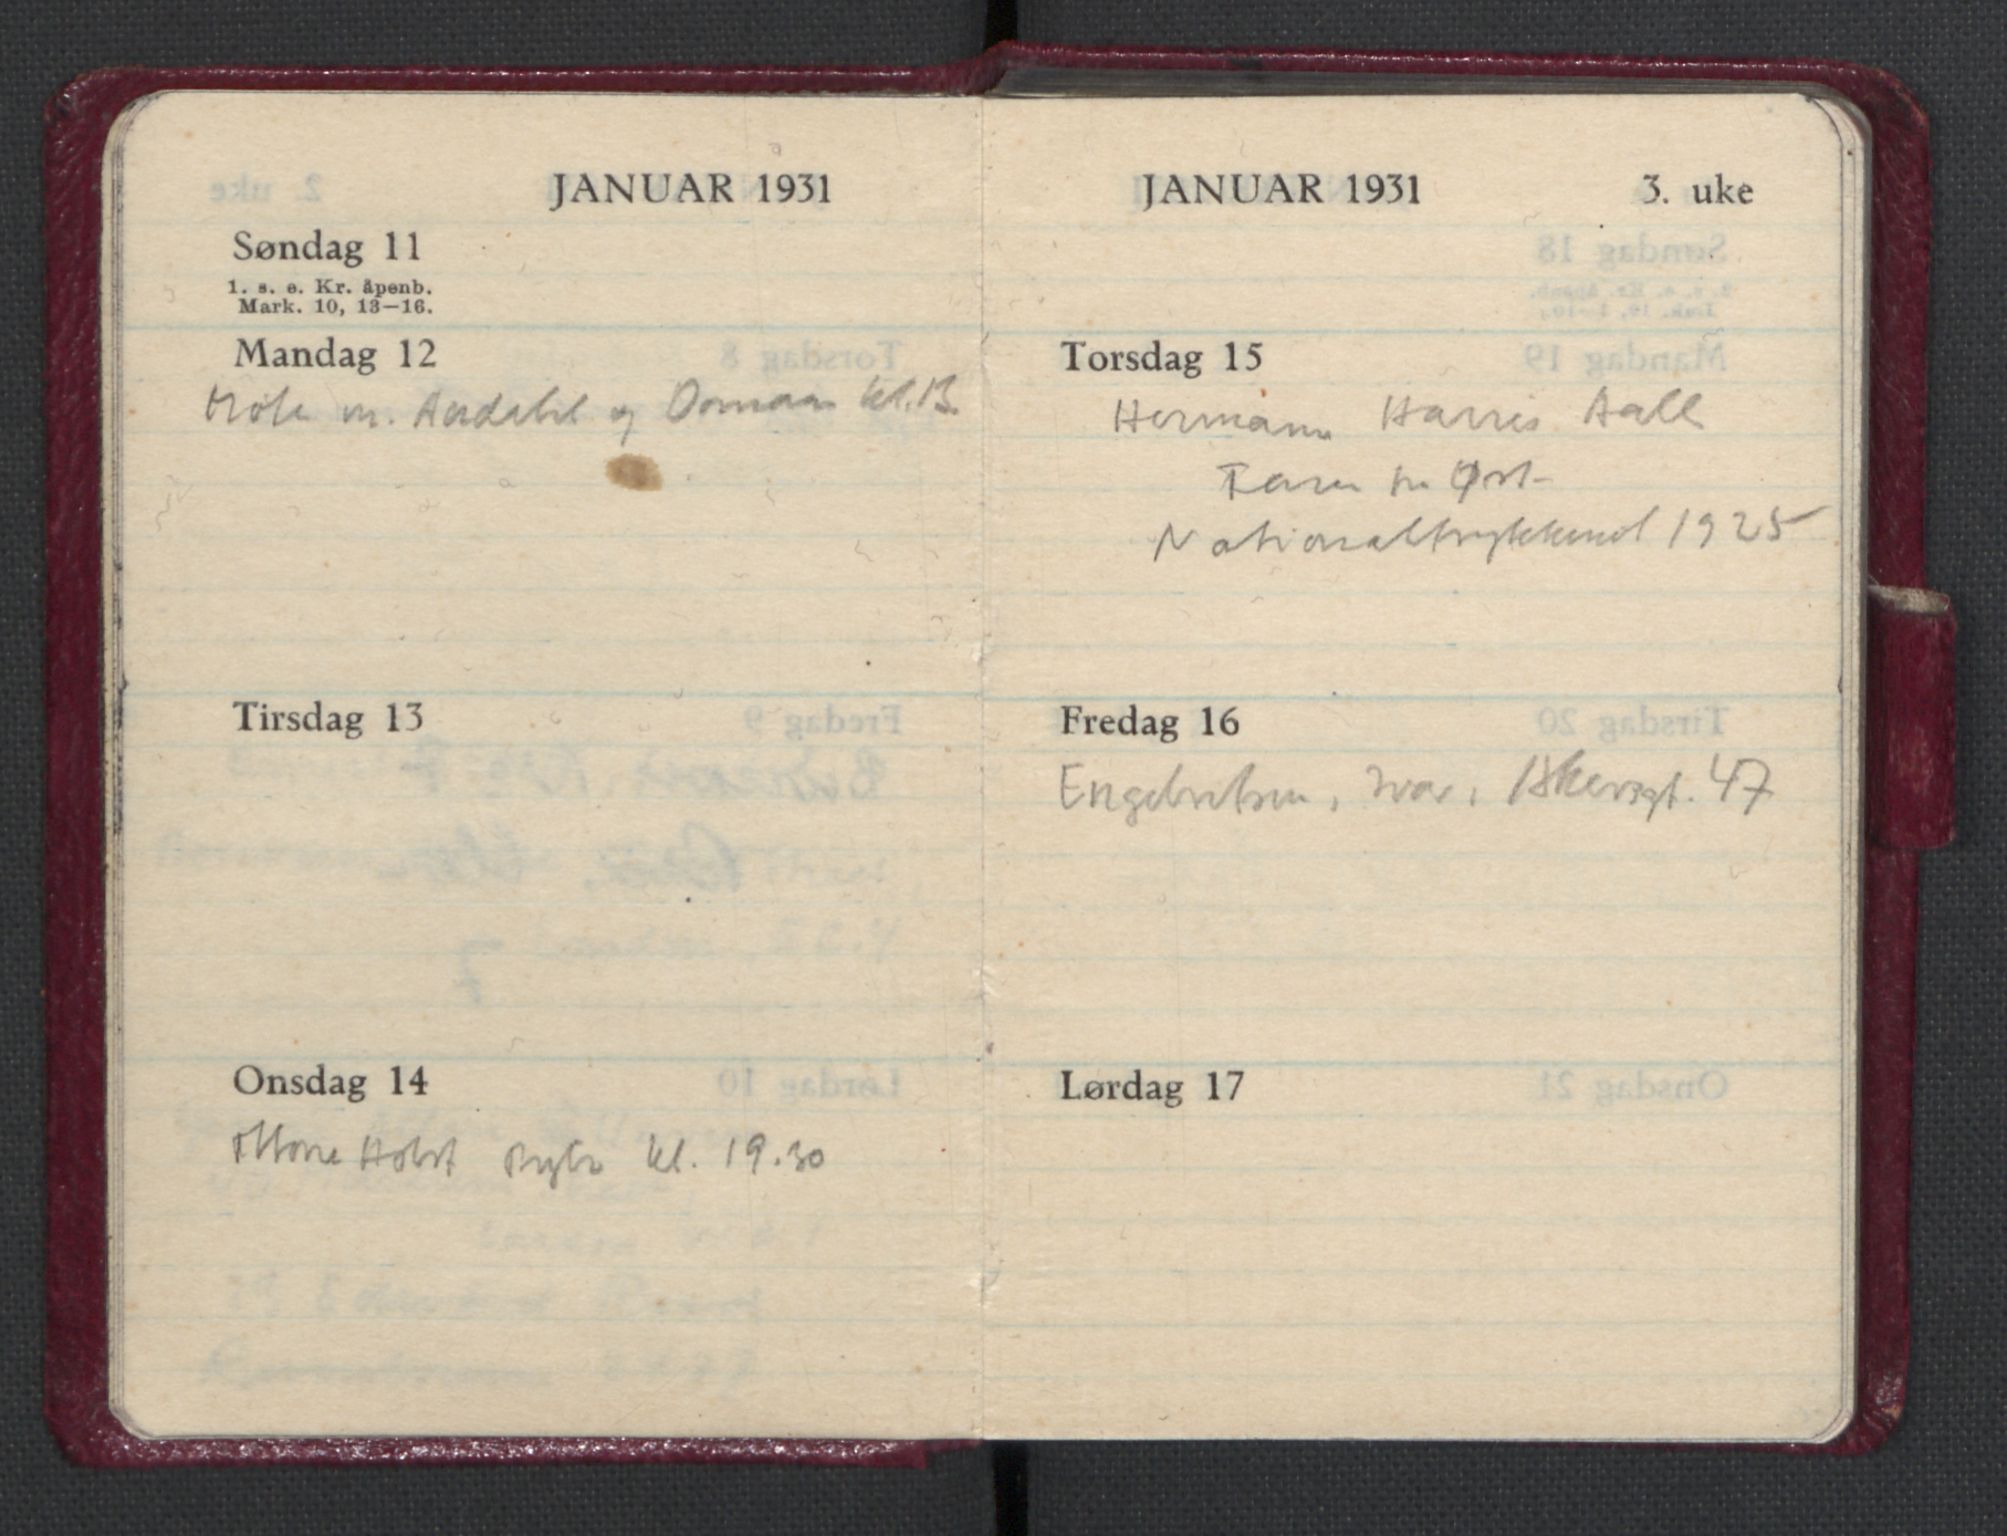 JANUAR 1931
Søndag 11
1. s. e. Kr. åpenb.
Mark. 10, 13—16.
Mandag 12
Møte m. Aadahl og kl. 13.
Tirsdag 13
Onsdag 14
Holst kl. 19.30
JANUAR 1931 3. uke
Torsdag 15
Hermann Harris Aall
Faren fra Øst-
Nationaltrykkeriet 1925
Fredag 16
Engebretsen, Ivar, Akersgt. 47
Lørdag 17